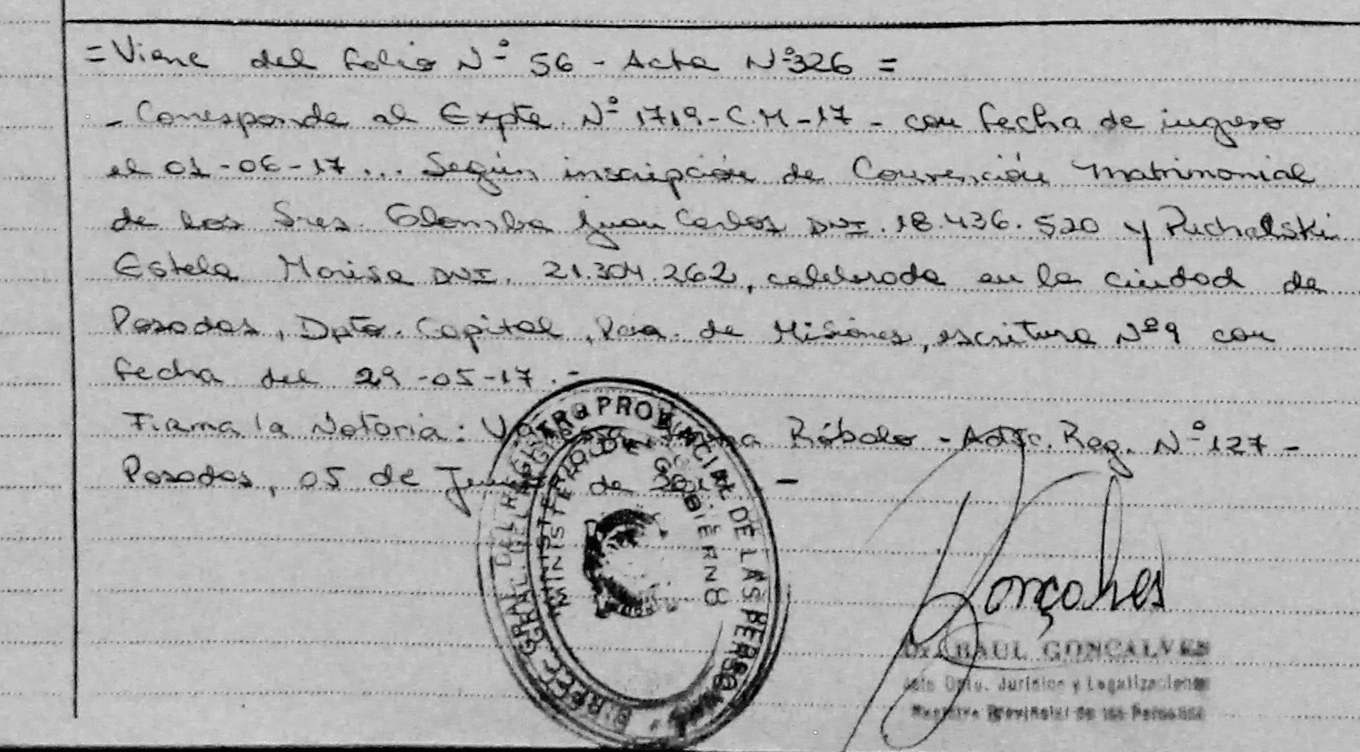 = Viene del folio Nº 56 - Acta Nº 326 =
- Corresponde al Expte. Nº 1719-C.M-17 - con fecha de ingreso
el 01-06-17... Según inscripción de Convención Matrimonial
de los Sres. Glomba Juan Carlos DNI. 18.436.520 y Puchalski
Estela Marisa DNI. 21.304.262, celebrada en la ciudad de
Posadas, Dpto. Capital, Pcia. de Misiones, escritura Nº 9 con
fecha del 29-05-17.-
Firma la Notaria: Róbalo - Adsc. Reg. Nº 127 -
Posadas, 05 de de -
DIREC. GRAL. DEL REGISTRO PROVINCIAL DE LAS PERSONAS
MINISTERIO DE GOBIERNO
Gonçalves
Dr. RAUL GONCALVES
Jefe Dpto. Jurídico y Legalizaciones
Registro Provincial de las Personas